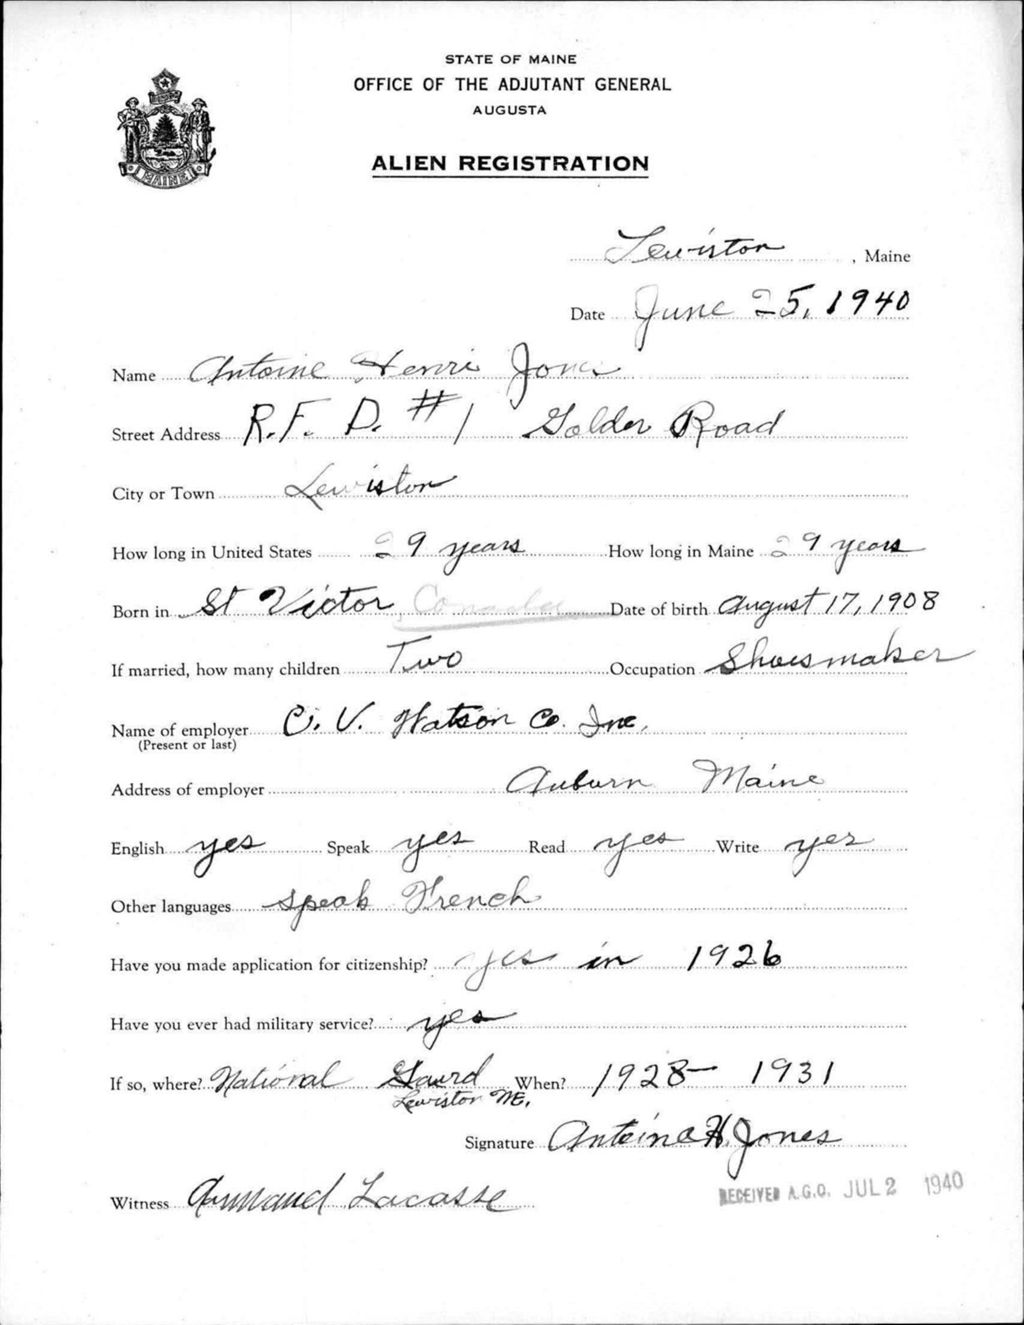 STATE OF MAINE
OFFICE OF THE ADJUTANT GENERAL
AUGUSTA
ALIEN REGISTRATION
MAINE
Lewiston, Maine
Date June 25, 1940
Name Antoine Henri Jones
Street Address R.F.D. #1 Golder Road
City or Town Lewiston
How long in United States 29 years How long in Maine 29 years
Born in St Victor, Canada Date of birth August 17, 1908
If married, how many children Two Occupation Shoesmaker
Name of employer C. V. Watson Co. Inc.
(Present or last)
Address of employer Auburn Maine
English yes Speak yes Read yes Write yes
Other languages speak French
Have you made application for citizenship? yes in 1926
Have you ever had military service? yes
If so, where? National Gaurd When? 1928-1931
Lewiston ME.
Signature Antoine H. Jones
Witness Armand Lacasse
RECEIVED A.G.O. JUL 2 1940